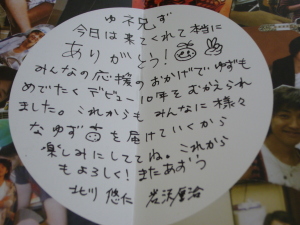 今日は来てくれて本当に
ありがとう!
みんなの応援のおかげでゆずも
めでたくデビュー10年をむかえられ
ました。これからもみんなに様々
なゆずを届けていくから
楽しみにしててね。これから
もよろしく!またあおうっ
北川悠仁 岩沢厚治